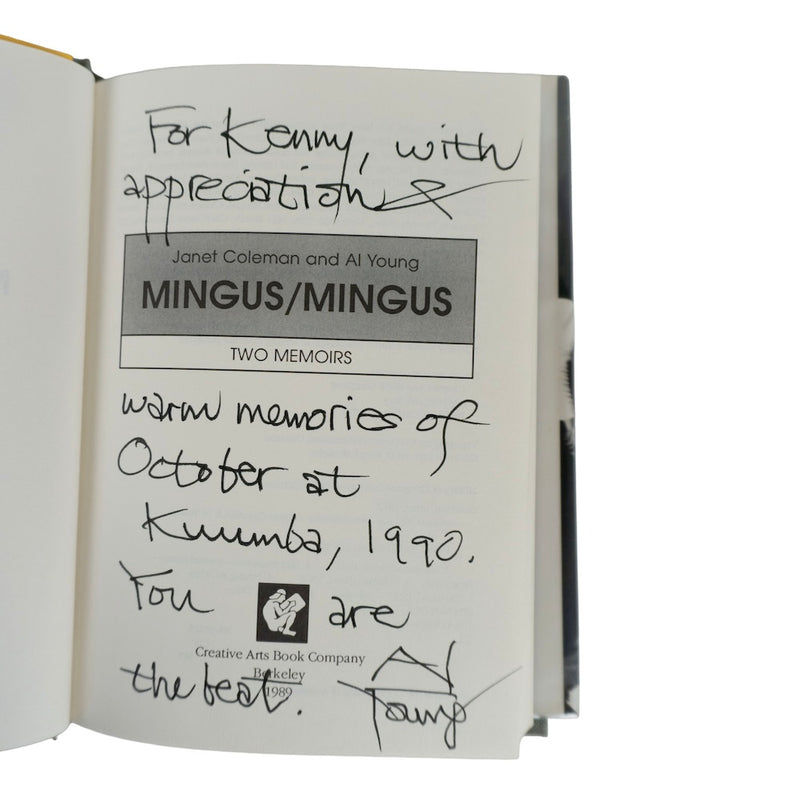 For Kenny, with
appreciation &
Janet Coleman and Al Young
MINGUS/MINGUS
TWO MEMOIRS
warm memories of
October at
Kuumba, 1990.
You are
Creative Arts Book Company
Berkeley
1989
the beat. Al
Young